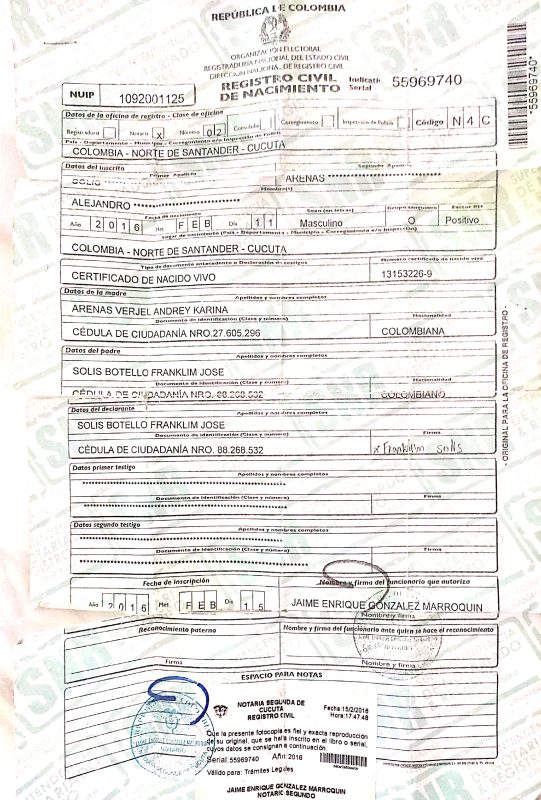 REPÚBLICA DE COLOMBIA
ORGANIZACIÓN ELECTORAL
REGISTRADURÍA NACIONAL DEL ESTADO CIVIL
DIRECCIÓN NACIONAL DE REGISTRO CIVIL
REGISTRO CIVIL
DE NACIMIENTO
NUIP 1092001125
Indicativo Serial 55969740
*55969740*
Datos de la oficina de registro - Clase de oficina
Registraduría Notaría X Número 02 Consulado Corregimiento Inspección de Policía Código N 4 C
País - Departamento - Municipio - Corregimiento e/o Inspección de Policía
COLOMBIA - NORTE DE SANTANDER - CUCUTA
Datos del inscrito
Primer Apellido Segundo Apellido
SOLIS ARENAS
Nombre(s)
ALEJANDRO
Fecha de nacimiento Sexo (en letras) Grupo sanguíneo Factor RH
Año 2016 Mes FEB Día 11 Masculino O Positivo
Lugar de nacimiento (País - Departamento - Municipio - Corregimiento e/o Inspección)
COLOMBIA - NORTE DE SANTANDER - CUCUTA
Tipo de documento antecedente o Declaración de testigos Número certificado de nacido vivo
CERTIFICADO DE NACIDO VIVO 13153226-9
Datos de la madre
Apellidos y nombres completos
ARENAS VERJEL ANDREY KARINA
Documento de identificación (Clase y número) Nacionalidad
CÉDULA DE CIUDADANÍA NRO.27.605.296 COLOMBIANA
Datos del padre
Apellidos y nombres completos
SOLIS BOTELLO FRANKLIM JOSE
Documento de identificación (Clase y número) Nacionalidad
CÉDULA DE CIUDADANÍA NRO. 88.268.532 COLOMBIANO
Datos del declarante
Apellidos y nombres completos
SOLIS BOTELLO FRANKLIM JOSE
Documento de identificación (Clase y número) Firma
CÉDULA DE CIUDADANÍA NRO. 88.268.532 x Franklim solis
Datos primer testigo
Apellidos y nombres completos
Documento de identificación (Clase y número) Firma
Datos segundo testigo
Apellidos y nombres completos
Documento de identificación (Clase y número) Firma
Fecha de inscripción Nombre y firma del funcionario que autoriza
Año 2016 Mes FEB Día 15 JAIME ENRIQUE GONZALEZ MARROQUIN
Nombre y firma
Reconocimiento paterno Nombre y firma del funcionario ante quien se hace el reconocimiento
Firma Nombre y firma
ESPACIO PARA NOTAS
NOTARIA SEGUNDA DE
CUCUTA
REGISTRO CIVIL
Fecha:15/2/2016
Hora:17:47:48
Que la presente fotocopia es fiel y exacta reproducción
de su original, que se halla inscrito en el libro o serial,
cuyos datos se consignan a continuación.
Serial:55969740 Año: 2016
Válido para: Trámites Legales
JAIME ENRIQUE GONZALEZ MARROQUIN
NOTARIO SEGUNDO
- ORIGINAL PARA LA OFICINA DE REGISTRO -